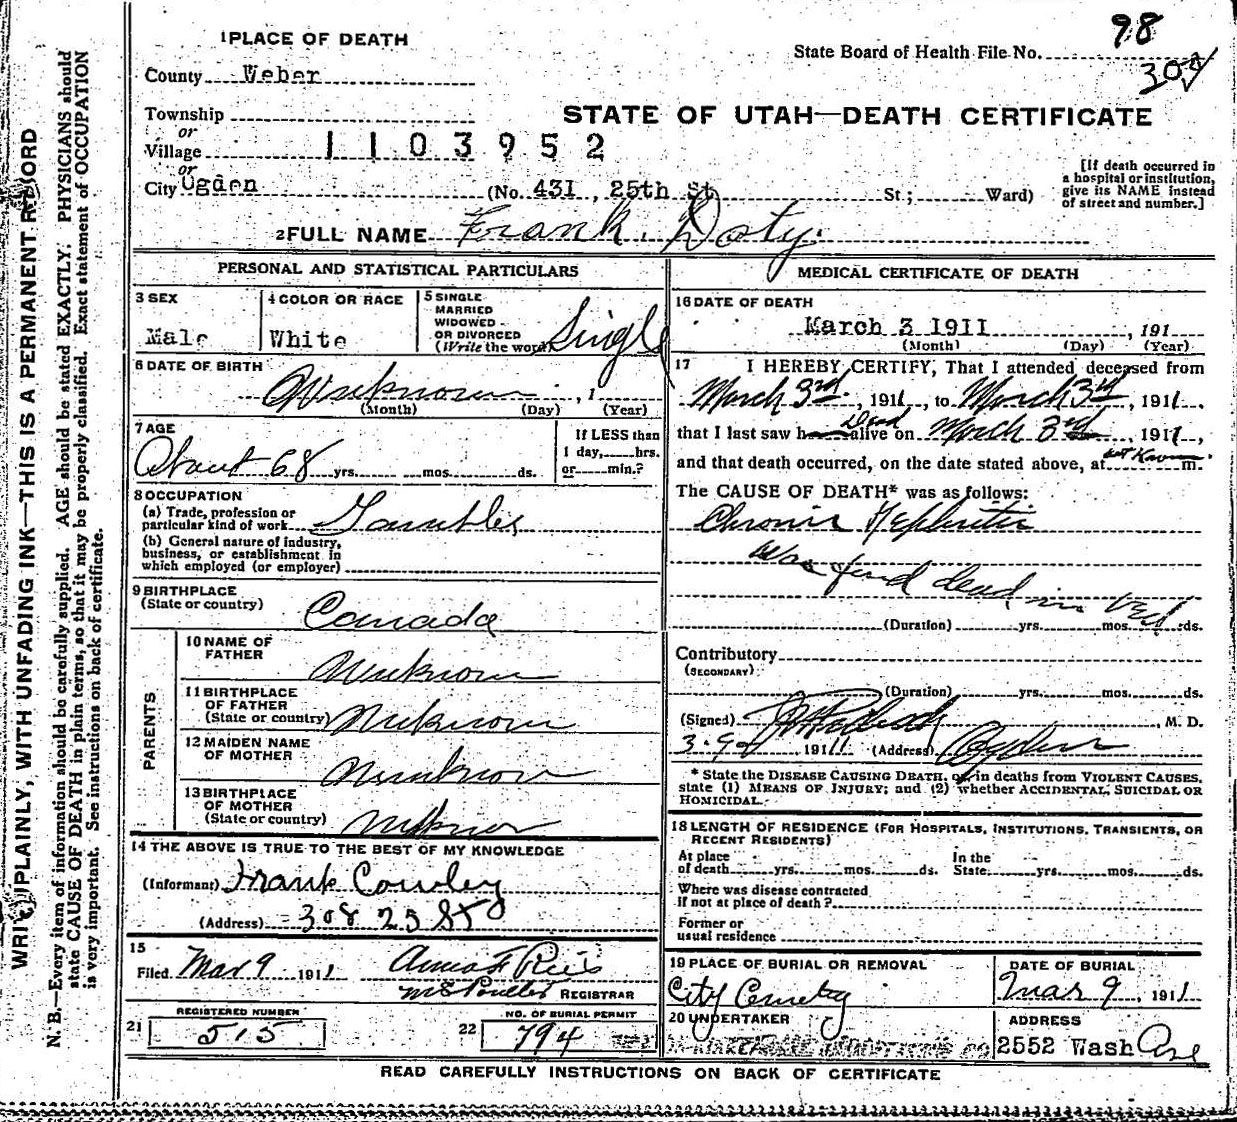 98
State Board of Health File No.
1 PLACE OF DEATH
County Weber
Township
STATE OF UTAH—DEATH CERTIFICATE
or
Village
1103952
or
City Ogden (No. 431, 25th St St; Ward)
[If death occurred in
a hospital or institution,
give its NAME instead
of street and number.]
2 FULL NAME Frank. Doty.
PERSONAL AND STATISTICAL PARTICULARS
3 SEX
Male
4 COLOR OR RACE
White
5 SINGLE
MARRIED
WIDOWED
OR DIVORCED
(Write the word) Single
6 DATE OF BIRTH
Unknown , 1
(Month) (Day) (Year)
7 AGE
About 68 yrs. mos. ds.
If LESS than
1 day, hrs.
or min.?
8 OCCUPATION
(a) Trade, profession or
particular kind of work Gambler
(b) General nature of industry,
business, or establishment in
which employed (or employer)
9 BIRTHPLACE
(State or country) Canada
PARENTS
10 NAME OF
FATHER Unknown
11 BIRTHPLACE
OF FATHER
(State or country) Unknown
12 MAIDEN NAME
OF MOTHER Unknown
13 BIRTHPLACE
OF MOTHER
(State or country) Unknown
14 THE ABOVE IS TRUE TO THE BEST OF MY KNOWLEDGE
(Informant) Frank Cowley
(Address) 308 25 St
15
Filed Mar 9 1911
REGISTRAR
REGISTERED NUMBER
21 515
NO. OF BURIAL PERMIT
22 794
MEDICAL CERTIFICATE OF DEATH
16 DATE OF DEATH
March 3 1911 , 191
(Month) (Day) (Year)
17 I HEREBY CERTIFY, That I attended deceased from
March 3rd, 1911, to March 3rd, 1911,
that I last saw h Dead alive on March 3rd, 1911,
and that death occurred, on the date stated above, at not Known m.
The CAUSE OF DEATH* was as follows:
Chronic Nephritis
Was found dead in bed
(Duration) yrs. mos. ds.
Contributory
(SECONDARY)
(Duration) yrs. mos. ds.
(Signed) M. D.
3-9 1911 (Address) Ogden
* State the DISEASE CAUSING DEATH, or, in deaths from VIOLENT CAUSES,
state (1) MEANS OF INJURY; and (2) whether ACCIDENTAL, SUICIDAL OR
HOMICIDAL.
18 LENGTH OF RESIDENCE (FOR HOSPITALS, INSTITUTIONS, TRANSIENTS, OR
RECENT RESIDENTS)
At place
of death yrs. mos. ds.
In the
State yrs. mos. ds.
Where was disease contracted
if not at place of death?
Former or
usual residence
19 PLACE OF BURIAL OR REMOVAL
City Cemetery
DATE OF BURIAL
Mar 9, 1911
20 UNDERTAKER
ADDRESS
2552 Wash Ave
READ CAREFULLY INSTRUCTIONS ON BACK OF CERTIFICATE
WRITE PLAINLY, WITH UNFADING INK—THIS IS A PERMANENT RECORD
N. B.—Every item of information should be carefully supplied. AGE should be stated EXACTLY. PHYSICIANS should
state CAUSE OF DEATH in plain terms, so that it may be properly classified. Exact statement of OCCUPATION
is very important. See instructions on back of certificate.